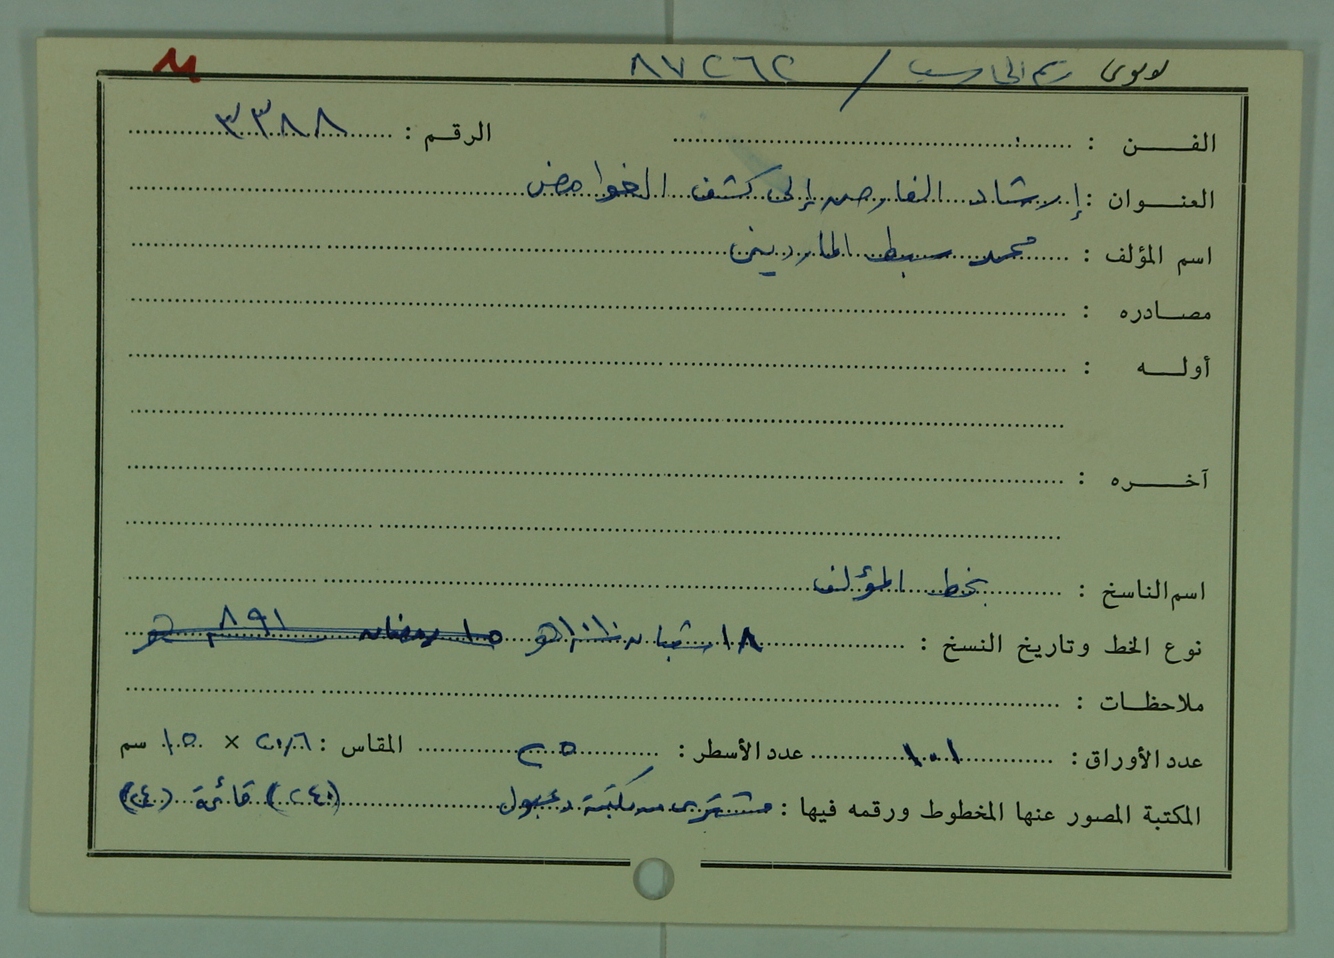 رقم الحاسب / ٨٧٢٦٢
الفـــن : الرقم : ٣٣٨٨
العنـــوان : إرشاد الفارض إلى كشف الغوامض
اسم المؤلف : محمد سبط المارديني
مصــادره :
أولـــه :
آخـــره :
اسم الناسخ : بخط المؤلف
نوع الخط وتاريخ النسخ : ١٨ شعبان هـ ١٥ رمضان ٨٩١ هـ
ملاحظــات :
عدد الأوراق : ١٠١ عدد الأسطر : ٢٥ المقاس : ٢١,٦ × ١٥ سم
المكتبة المصور عنها المخطوط ورقمه فيها : مشترى من مكتبة دعبول (٢٤٠) قائمة (٢٤)